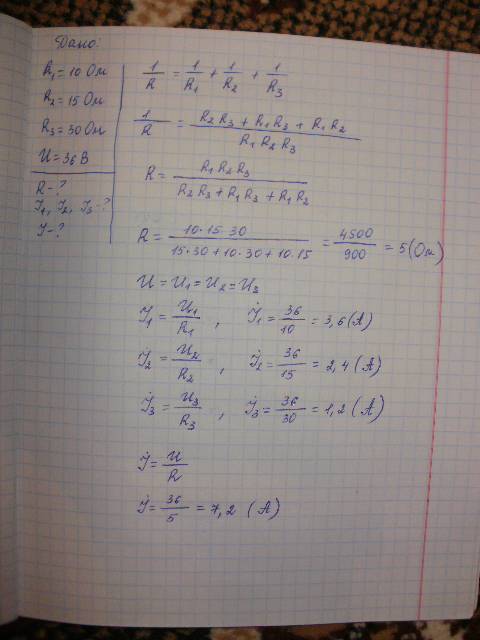 Дано:
R₁ = 10 Ом
R₂ = 15 Ом
R₃ = 30 Ом
U = 36 В
R - ?
I₁, I₂, I₃ - ?
I - ?
1/R = 1/R₁ + 1/R₂ + 1/R₃
1/R = (R₂R₃ + R₁R₃ + R₁R₂)/(R₁R₂R₃)
R = (R₁R₂R₃)/(R₂R₃ + R₁R₃ + R₁R₂)
R = (10·15·30)/(15·30+10·30+10·15) = 4500/900 = 5 (Ом)
U = U₁ = U₂ = U₃
I₁ = U₁/R₁ , I₁ = 36/10 = 3,6 (А)
I₂ = U₂/R₂ , I₂ = 36/15 = 2,4 (А)
I₃ = U₃/R₃ , I₃ = 36/30 = 1,2 (А)
I = U/R
I = 36/5 = 7,2 (А)